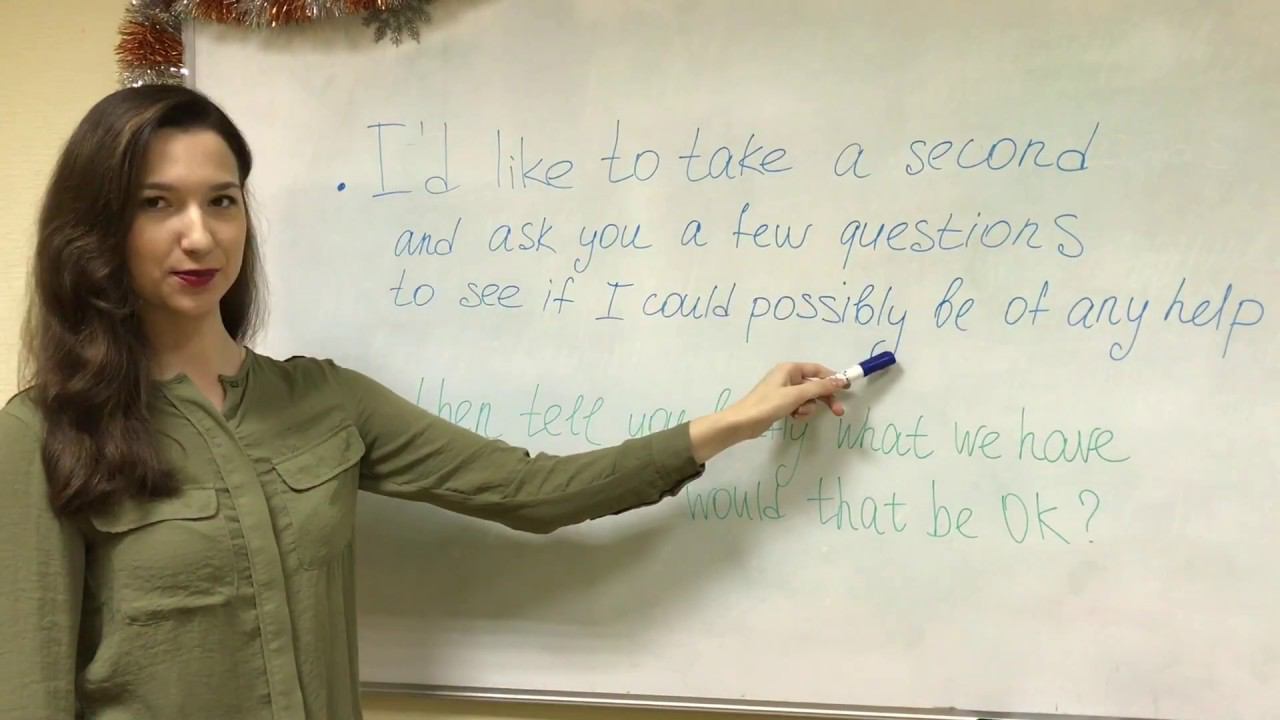 . I'd like to take a second
and ask you a few questions
to see if I could possibly be of any help
then tell you what we have
would that be OK?